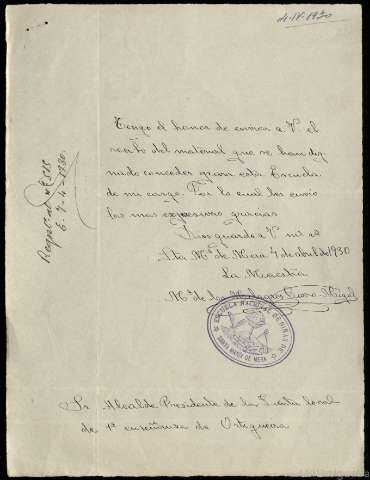 4-IV-1930
Tengo el honor de enviar a V. el
recibo del material que se han dig-
nado conceder para esta Escuela
de mi cargo. Por lo cual les envio
las mas expresivas gracias
Dios guarde a V. m. a.
Sta Mª de Mera 4 de abril de 1930
La Maestra
Mª de los Milagros
ESCUELA NACIONAL DE NIÑAS DE
SANTA MARIA DE MERA
Sr Alcalde Presidente de la Junta local
de 1ª enseñanza de Ortigueira